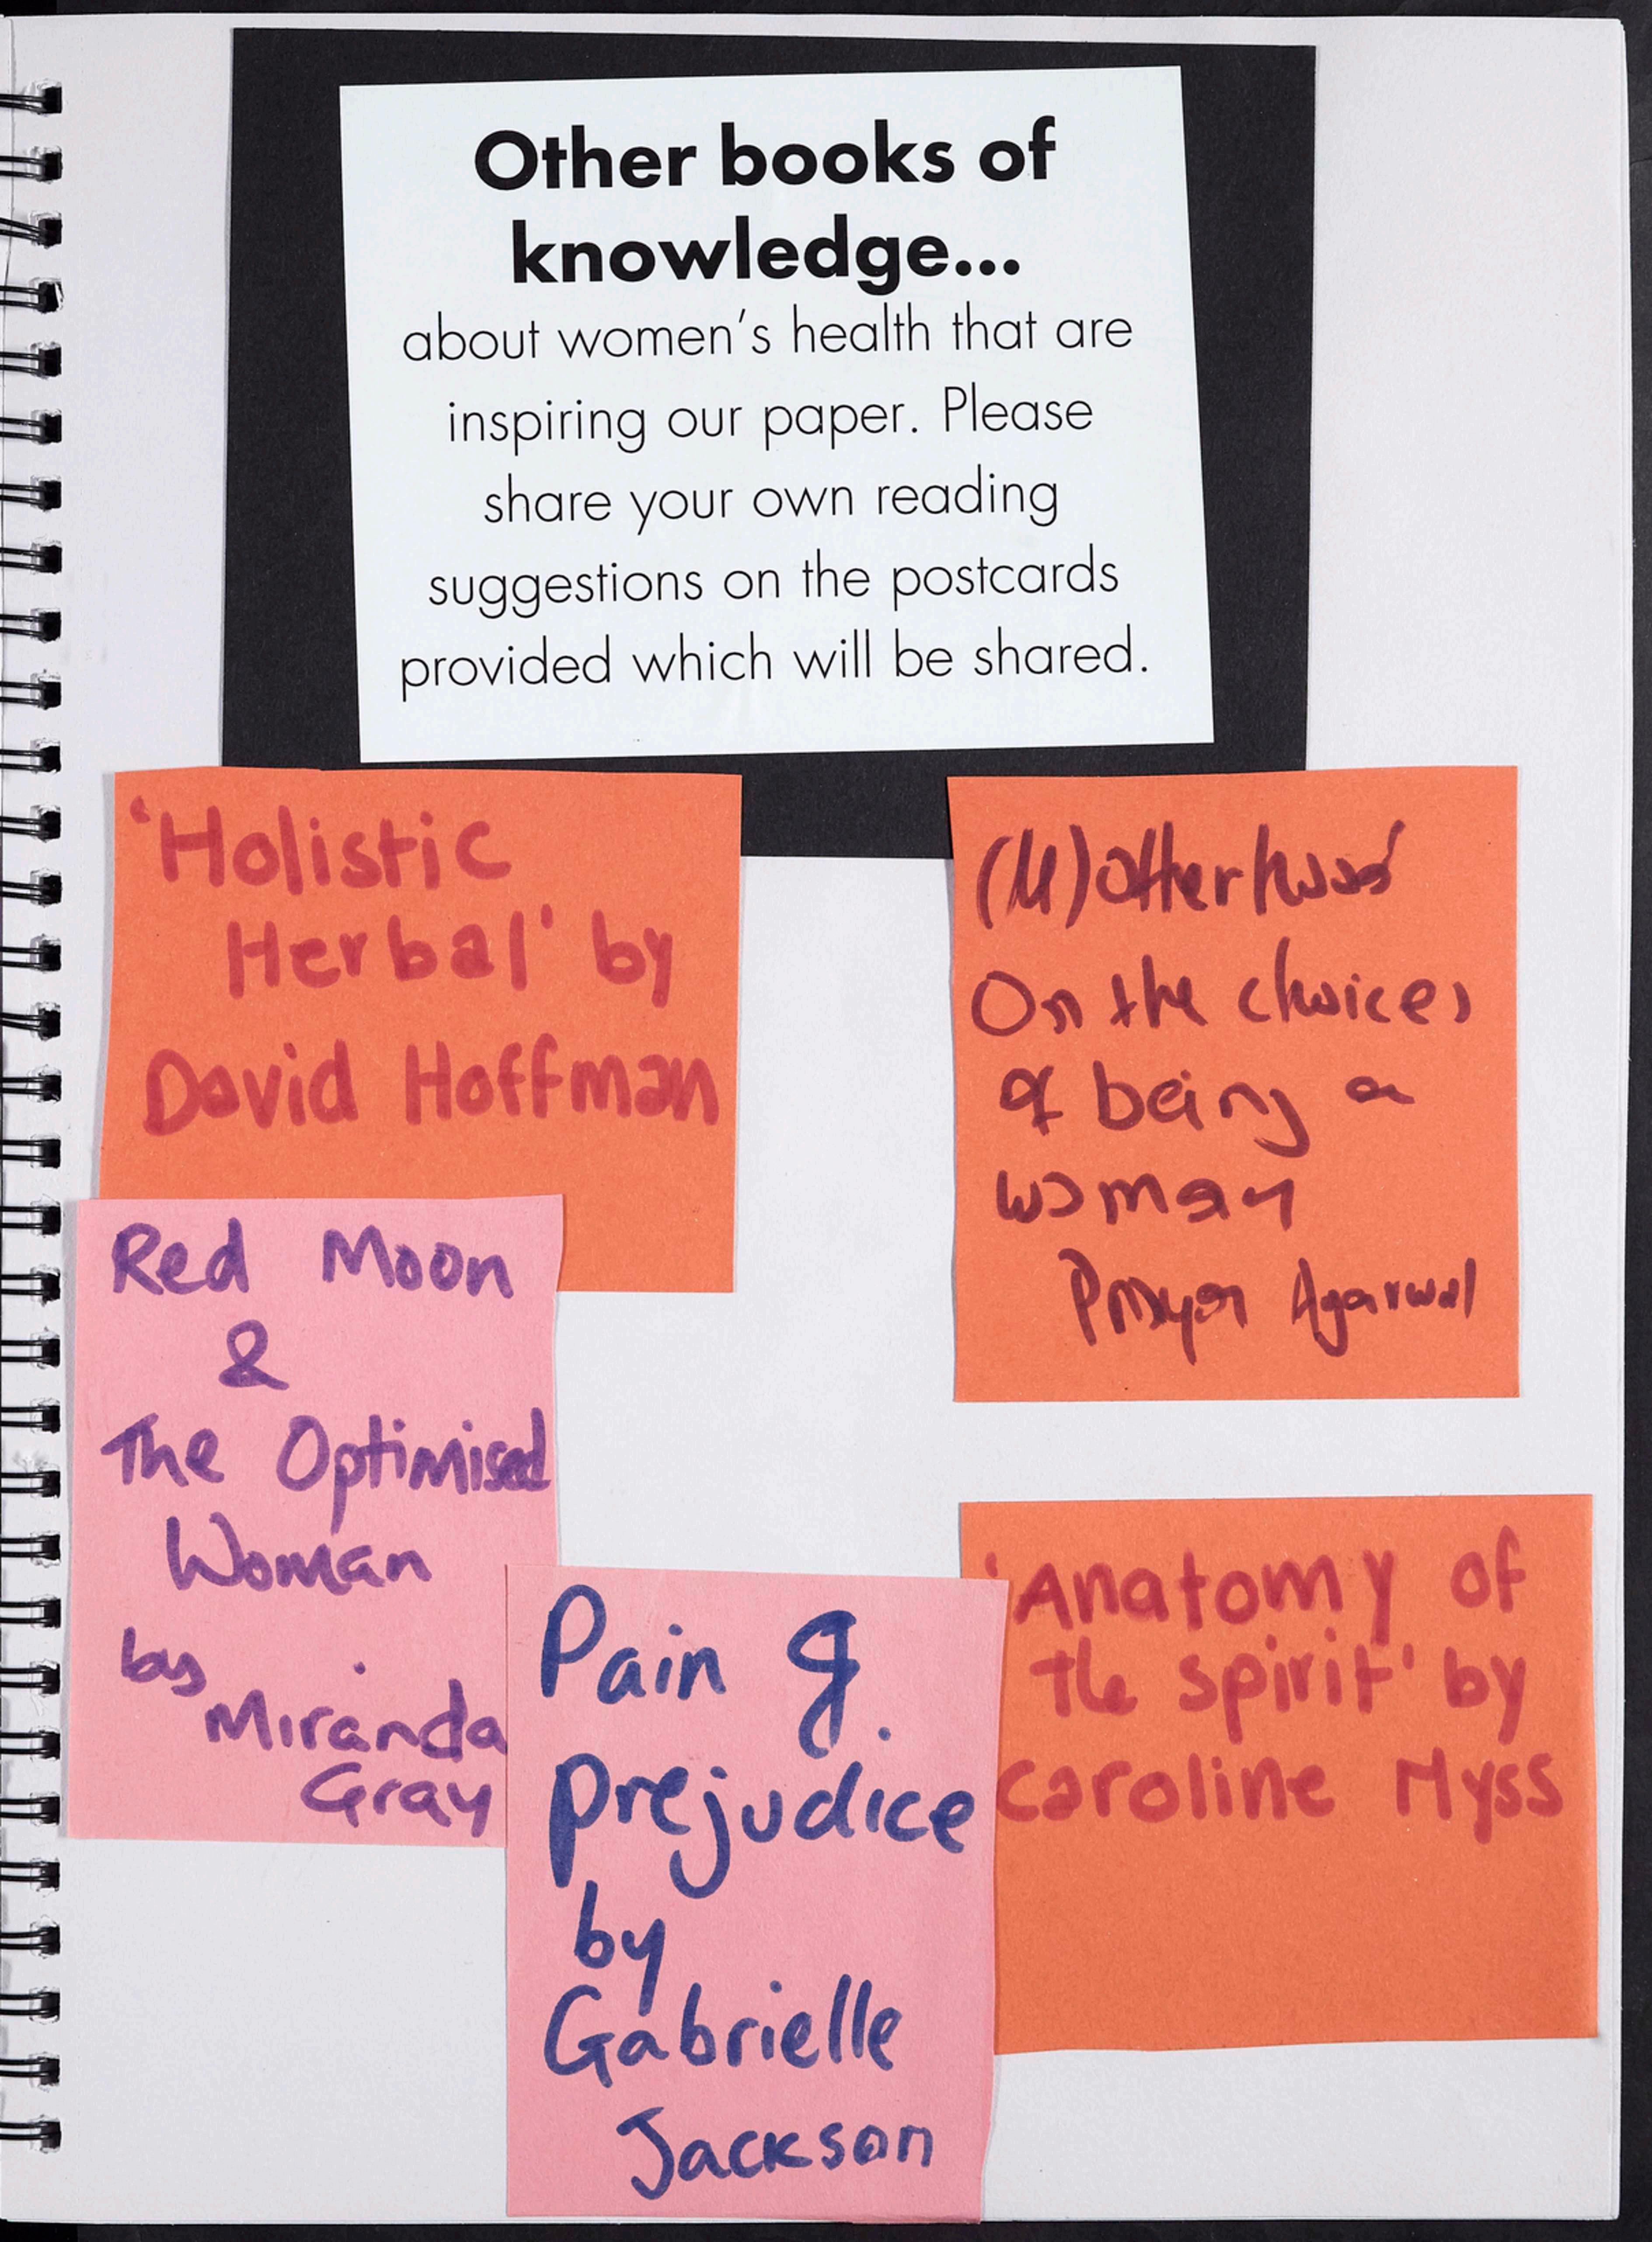 Other books of
knowledge...
about women's health that are
inspiring our paper. Please
share your own reading
suggestions on the postcards
provided which will be shared.
'Holistic
Herbal' by
David Hoffman
(M)otherhood
On the choices
of being a
woman
Pragya Agarwal
Red Moon
&
The Optimised
Woman
by
Miranda
Gray
Pain &
prejudice
by
Gabrielle
Jackson
'Anatomy of
the spirit' by
Caroline Myss